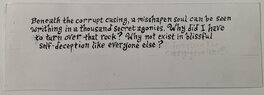 Beneath the corrupt casing, a misshapen soul can be seen
writhing in a thousand secret agonies. Why did I have
to turn over that rock? Why not exist in blissful
self-deception like everyone else?